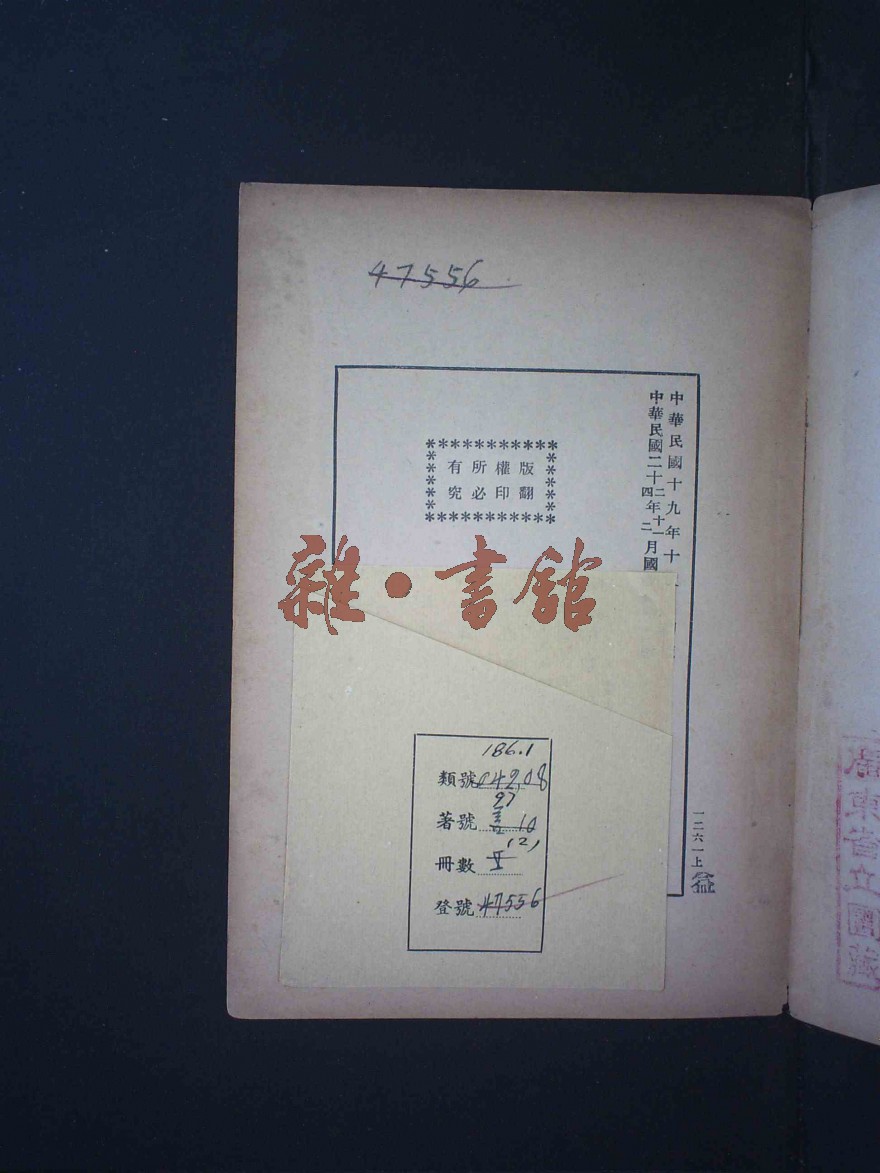 47556
中華民國十九年十
中華民國二十二年十一月國
四 二
版權所有
翻印必究
雜·書館
186.1
類號 042.08
97
著號 10
(2)
冊數
登號 47556
一二六一上
東省立圖